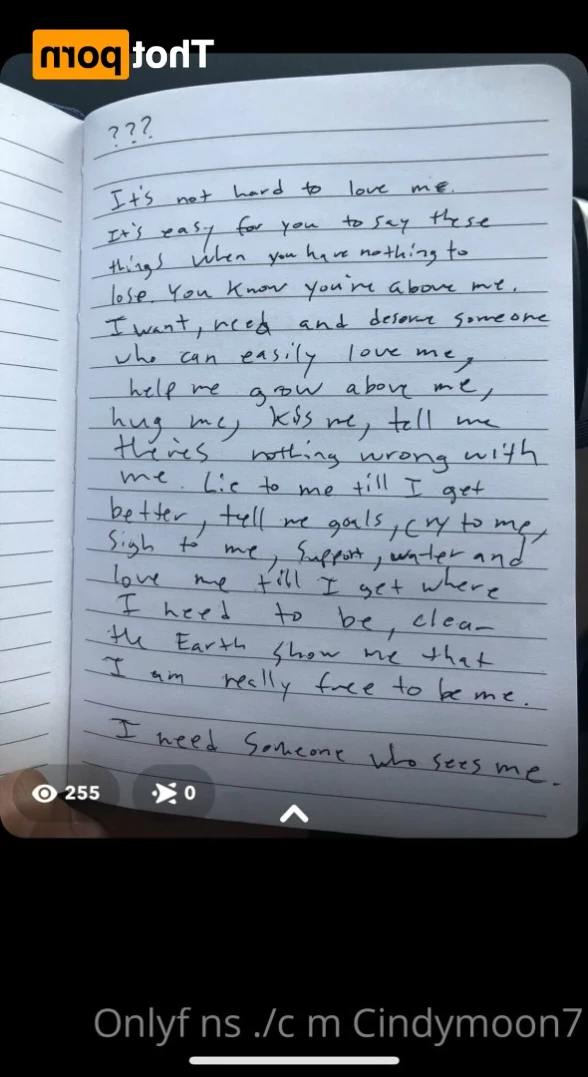 Thot porn
???
It's not hard to love me.
It's easy for you to say these
things when you have nothing to
lose. You know you're above me.
I want, need and deserve someone
who can easily love me,
help me grow above me,
hug me, kiss me, tell me
there's nothing wrong with
me. Lie to me till I get
better, tell me goals, cry to me,
sigh to me, support, water and
love me till I get where
I need to be, clear
the Earth show me that
I am really free to be me.
I need someone who sees me.
255
0
Onlyf ns ./c m Cindymoon7